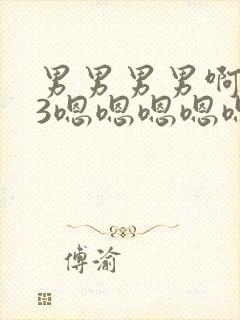 男男男男啊
3嗯嗯嗯嗯
傅渝